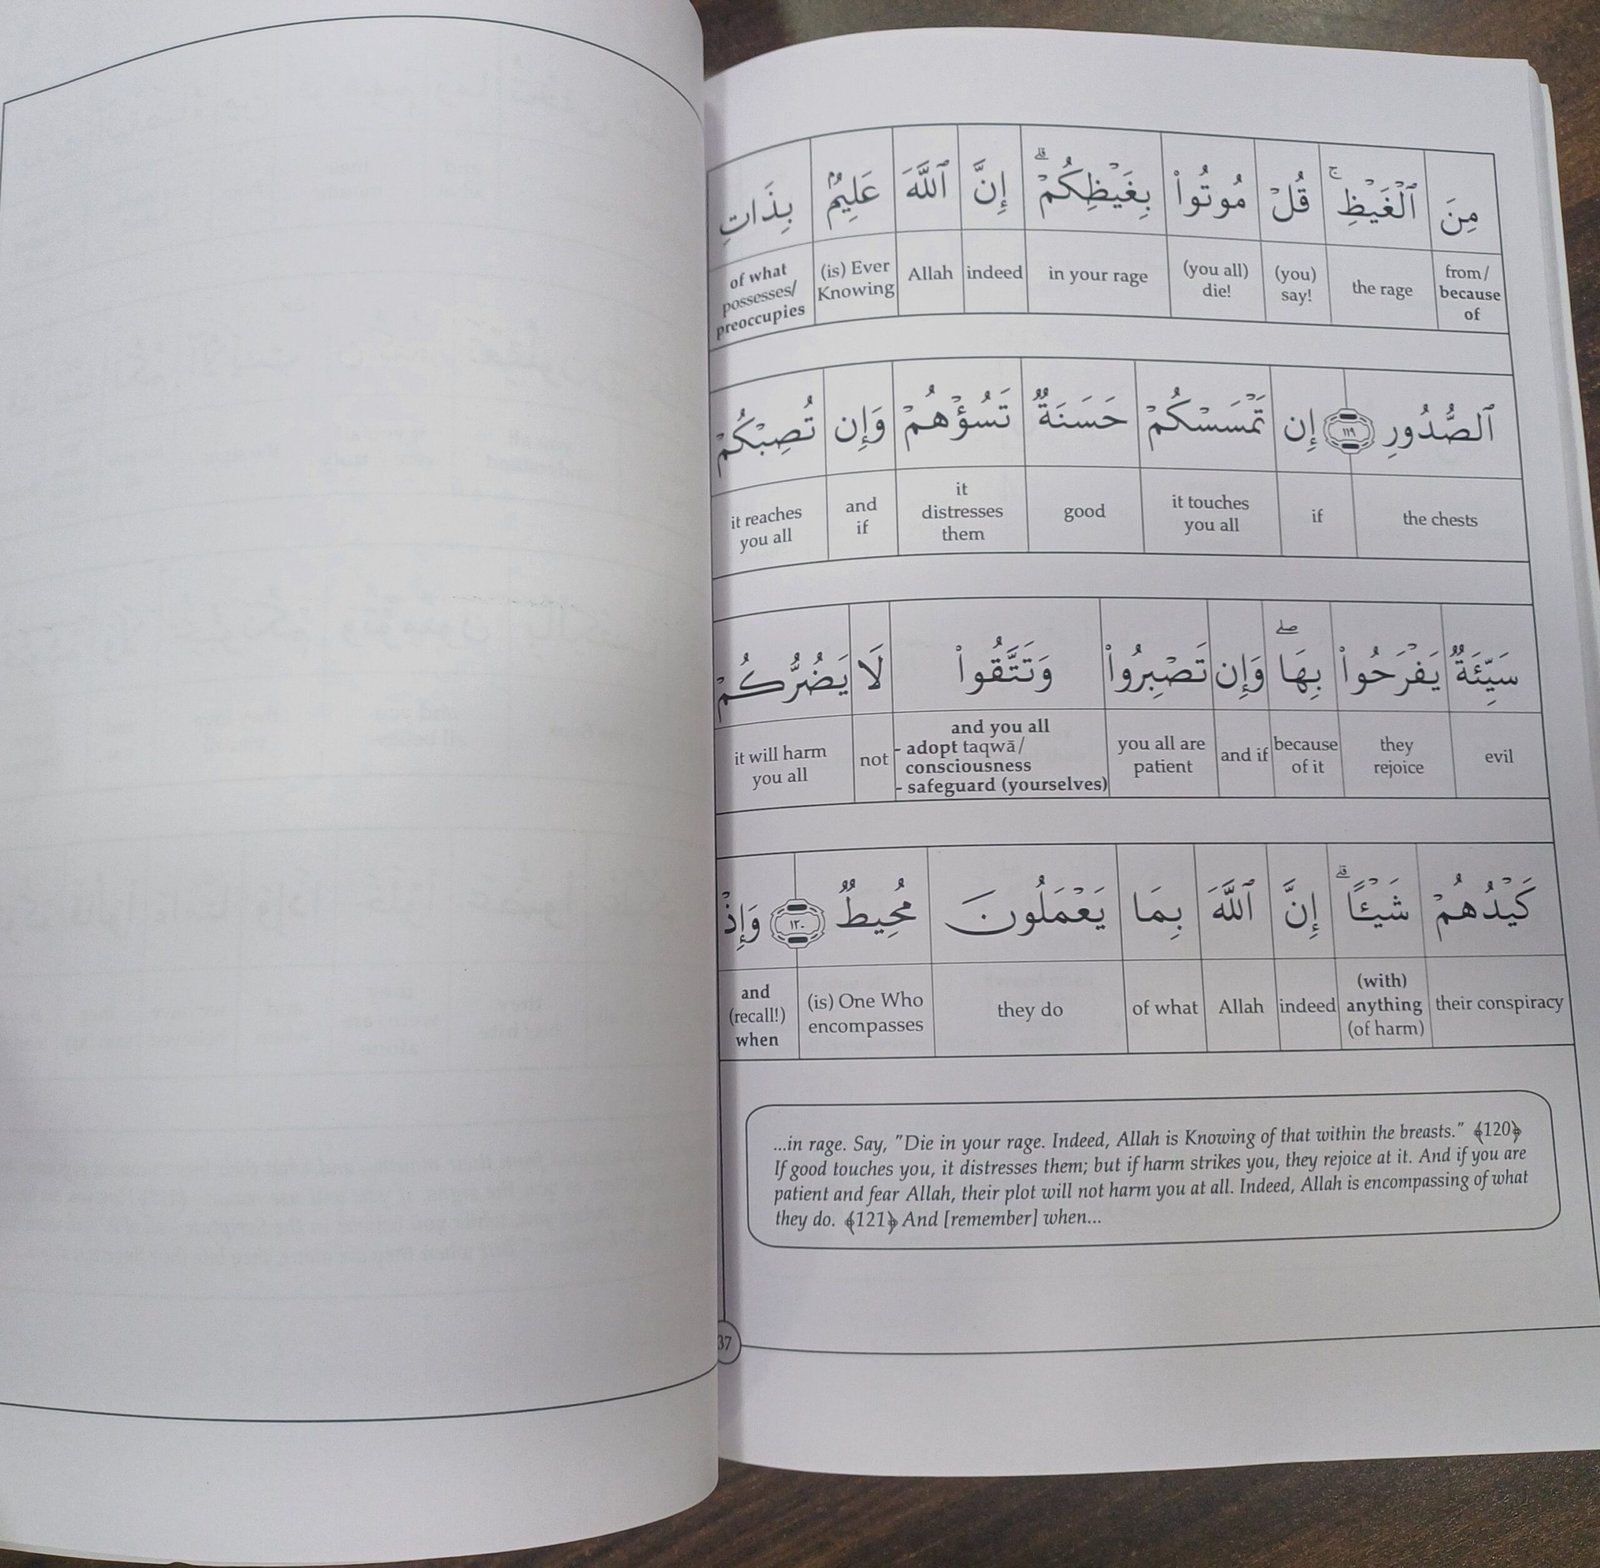 مِنَ ٱلْغَيْظِ ۚ قُلْ مُوتُوا۟ بِغَيْظِكُمْ ۗ إِنَّ ٱللَّهَ عَلِيمٌۢ بِذَاتِ
from/ because of the rage (you) say! (you all) die! in your rage indeed Allah (is) Ever Knowing of what possesses/ preoccupies
ٱلصُّدُورِ ١١٩ إِن تَمْسَسْكُمْ حَسَنَةٌ تَسُؤْهُمْ وَإِن تُصِبْكُمْ
the chests if it touches you all good it distresses them and if it reaches you all
سَيِّئَةٌ يَفْرَحُوا۟ بِهَا ۖ وَإِن تَصْبِرُوا۟ وَتَتَّقُوا۟ لَا يَضُرُّكُمْ
evil they rejoice because of it and if you all are patient and you all - adopt taqwā/ consciousness - safeguard (yourselves) not it will harm you all
كَيْدُهُمْ شَيْـًٔا ۗ إِنَّ ٱللَّهَ بِمَا يَعْمَلُونَ مُحِيطٌ ١٢٠ وَإِذْ
their conspiracy (with) anything (of harm) indeed Allah of what they do (is) One Who encompasses and (recall!) when
...in rage. Say, "Die in your rage. Indeed, Allah is Knowing of that within the breasts." ﴾120﴿
If good touches you, it distresses them; but if harm strikes you, they rejoice at it. And if you are
patient and fear Allah, their plot will not harm you at all. Indeed, Allah is encompassing of what
they do. ﴾121﴿ And [remember] when...
37